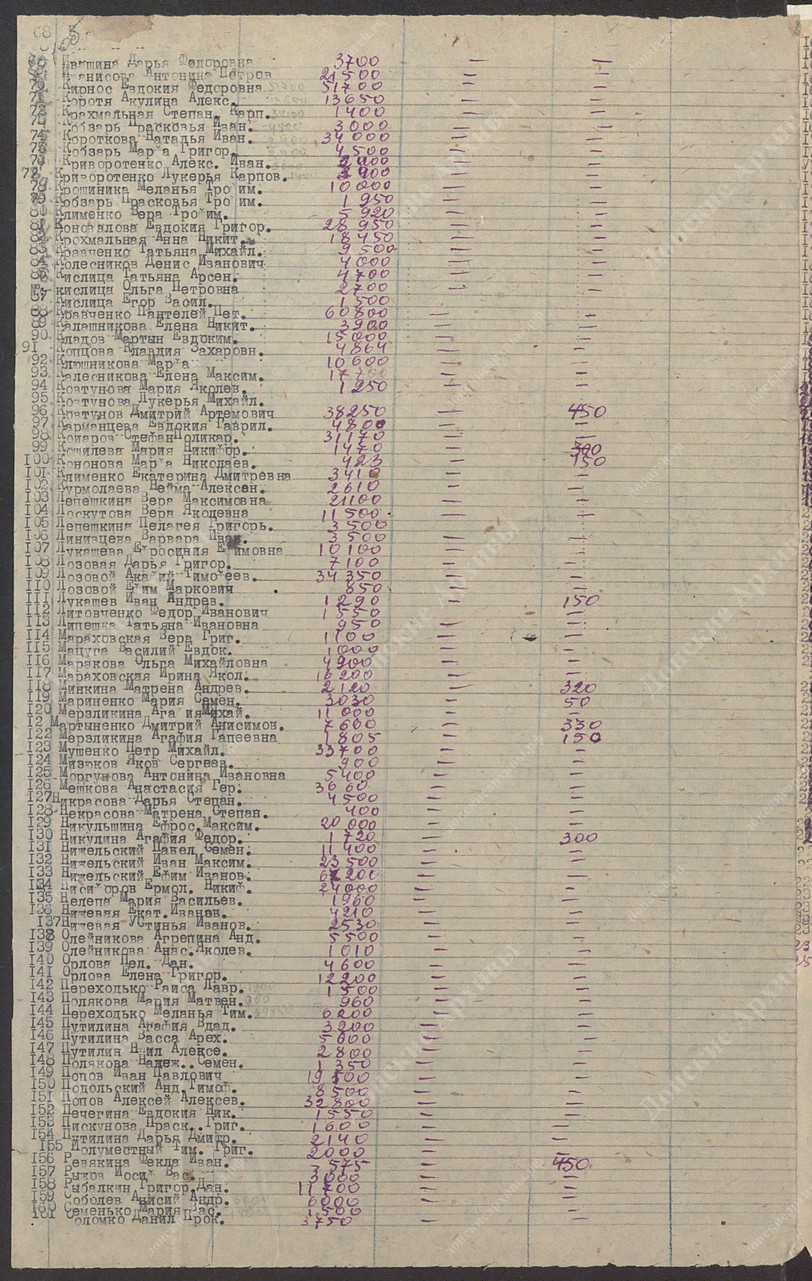 68
Ившина Дарья Федоровна 3700 — —
Антонина Петров 21500 — —
70 Кирнос Евдокия Федоровна 51700 — —
71 Коротя Акулина Алекс. 13650 — —
72 Крахмальная Степан. Карп. 1400 — —
Кобзарь Прасковья Иван. 3000 — —
74 Короткова Наталья Иван. 34000 — —
Кобзарь Марфа Григор. 4500 — —
Криворотенко Алекс. Иван. — —
77 Криворотенко Лукерья Карпов. — —
78 Крошиника Меланья Тро им. 10000 — —
79 Кобзарь Прасковья Тро им. 1950 — —
Клименко Вера Тро им. 5920 — —
Коновалова Евдокия Григор. 28950 — —
Крохмальная Анна Никит. 18450 — —
Кравченко Татьяна Михайл. 9500 — —
84 Колесников Денис Иванович 4000 — —
Кислица Татьяна Арсен. 4700 — —
кислица Ольга Петровна 2700 — —
87 Кислица Егор Васил. 1500 —
88 Кравченко Пантелей Пет. 60800 — —
89 Калашникова Елена Никит. 3900 — —
90 Кладов Мартын Евдоким. 15000 — —
91 Копцова Клавдия Захаровн. 4864 — —
92 Ключникова Марфа 10600 — —
93 Калесникова Елена Максим. — —
94 Ковтунова Мария Яковлев. 1250 — —
95 Ковтунова Лукерья Михайл.
96 Ковтунов Дмитрий Артемович 38250 — 450
97 Карманцева Евдокия Гаврил. 4800 —
98 Комаров Стефан Поликар. 31170 — —
99 Кошилева Мария Никифор. 1470 — 300
100 Кононова Мар а Николаев. 423 — 150
101 Клименко Екатерина Дмитревна 3410 — —
102 Курмолаева Алексан. 2610 — —
103 Лепешкина Вера Максимовна 21100 — —
104 Лоскутова Вера Яковевна 11500 — —
105 Лепешкина Пелагея Григорь. 3500 — —
106 Линивцева Варвара Иван. 3500 — —
107 Лукашева Е росиния Е имовна 10100 — —
108 Лозовая Дарья Григор. 7100 — —
109 Лозовой Ака ий Тимо еев. 34350 — —
110 Лозовой Е им Маркович 850 — —
111 Лукашев Иван Андрев. 1290 — 150
112 Литовченко Федор Иванович 1550 — —
113 Липешка Татьяна Ивановна 950 — —
114 Мараховская Вера Григ. 1100 — —
115 Мацура Василий Евдок. 1000 — —
116 Маракова Ольга Михайловна 4900 — —
117 Мараховская Ирина Якол. 16200 — —
118 Минкина Матрена Андрев. 2120 — 320
119 Мариненко Мария Семен. 3030 — 50
120 Мерзликина Ага ия Михай. 11000 — —
12 Мартыненко Дмитрий Анисимов. 7600 — 330
122 Мерзликина Агафия Гапеевна 1805 — 150
123 Мушенко Петр Михайл. 33700 — —
124 Мизюков Яков Сергеев. 900 — —
125 Моргунова Антонина Ивановна 5400 — —
126 Мешкова Анастасия Гер. 3660 — —
127 Никрасова Дарья Степан. 4500 — —
128 Некрасова Матрена Степан. 400 — —
129 Никульшина Ефрос. Максим. 20000 — —
130 Никулина Агафия Федор. 1720 — 300
131 Нижельский Павел Семен. 11400 — —
132 Нижельский Иван Максим. 23500 — —
133 Нижельский Ефим Иванов. — —
134 Ниси оров Ермол. Никиф. 24000 — —
135 Нелепа Мария Васильев. 1960 — —
136 Нитевая Екат. Иванов. 4210 — —
137 Нитевая Устинья Иванов. 2530 — —
138 Олейникова Агрепина Анд. 5500 — —
139 Олейникова Анас. Яколев. 1010 — —
140 Орлова Пел. Дан. 4600 — —
141 Орлова Елена Григор. 12200 — —
142 Переходько Раиса Лавр. 1500 — —
143 Полякова Мария Матвен. 960 — —
144 Переходько Меланья Тим. 6200 — —
145 Путилина Агафия Влад. 3200 — —
146 Путилина Васса Арех. 5600 — —
147 Путилин Нил Алексе. 2800 — —
148 Полякова Надеж. Семен. 1350 — —
149 Попов Иван Павлович 19500 — —
150 Подольский Анд. Тимоф. 8500 — —
151 Попов Алексей Алексев. 32800 — —
152 Печегина Евдокия Ник. 1550 — —
153 Пискунова Праск. Григ. 1600 — —
154 Путилина Дарья Дмитр. 2140 — —
155 Полуместный Тим. Григ. 2000 — —
156 Ревякина Фекла Иван. 3575 — 450
157 Рыжов Иоси Вас. 3000 — —
158 Рыбалкин Григор. Дан. 11700 — —
159 Соболев Анисий Андр. 6000 — —
160 Семенько Мария Вас. 1500 — —
161 Соломко Данил Прок. 3750 — —